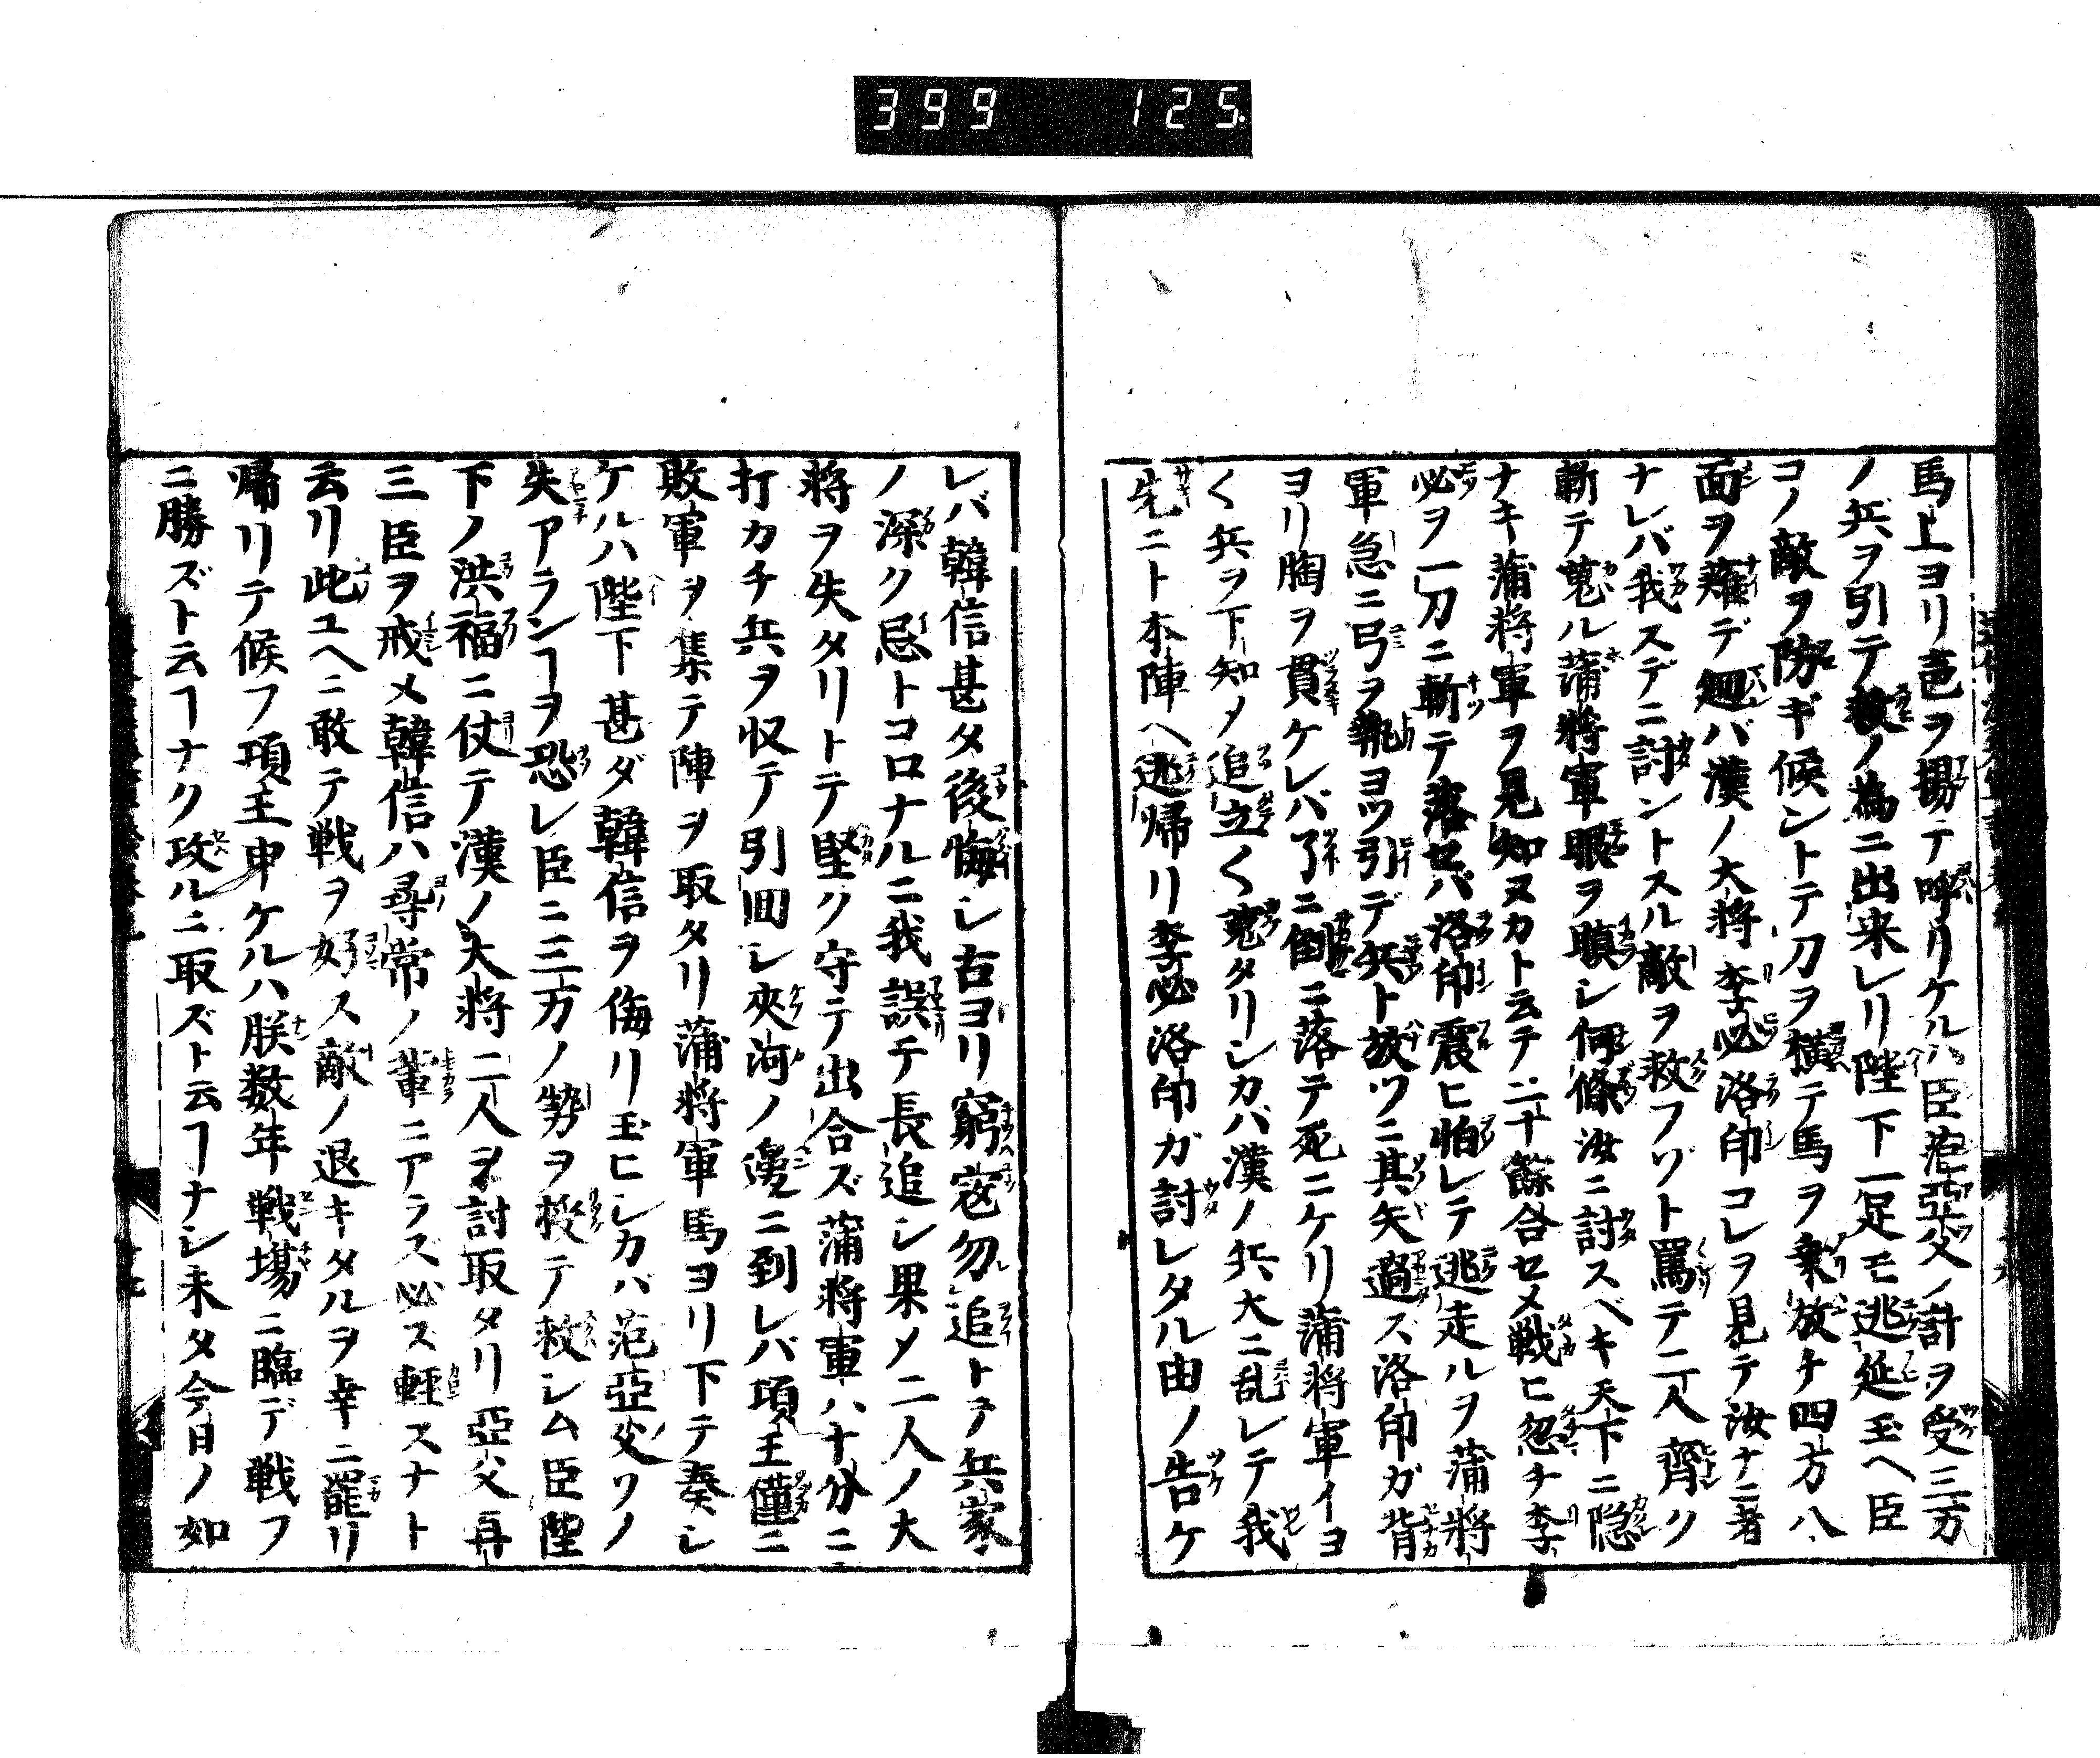 399 125
馬上ヨリ声ヲ揚テ呼リケルハ臣范亞父ノ計ヲ受三方
ノ兵ヲ引テ救ノ為ニ出来レリ陛下一足モ逃延玉ヘ臣
コノ敵ヲ防ギ候ントテ刀ヲ横テ馬ヲ乗放チ四方八
面ヲ薙デ廻バ漢ノ大将李必洛印コレヲ見テ汝ナニ者
ナレバ我スデニ討ントスル敵ヲ救フゾト罵テ二人齊ク
斬テ蒐ル蒲将軍眼ヲ瞋シ何條汝ニ討スベキ天下ニ隠
ナキ蒲将軍ヲ見知ヌカト云テ二十餘合セメ戦ヒ忽チ李
必ヲ一刀ニ斬テ落セバ洛印震ヒ怕レテ逃走ルヲ蒲将
軍急ニ弓ヲ執ヨツ引デ兵ト放ツニ其矢過ス洛印ガ背
ヨリ胸ヲ貫ケレバ了ニ倒ニ落テ死ニケリ蒲将軍イヨ
く兵ヲ下知メ追立く蒐タリシカバ漢ノ兵大ニ乱レテ我
先ニト本陣ヘ逃帰リ李必洛印ガ討レタル由ノ告ケ
レバ韓信甚タ後悔シ古ヨリ窮寇勿追トテ兵家
ノ深ク忌トコロナルニ我誤テ長追シ果メ二人ノ大
将ヲ失タリトテ堅ク守テ出合ズ蒲将軍ハ十分ニ
打カチ兵ヲ収テ引回シ夾河ノ邊ニ到レバ項王僅ニ
敗軍ヲ集テ陣ヲ取タリ蒲将軍馬ヨリ下テ奏シ
ケルハ陛下甚ダ韓信ヲ侮リ玉ヒシカバ范亞父ソノ
失アランヿヲ恐レ臣ニ三方ノ勢ヲ授テ救シム臣陛
下ノ洪福ニ仗テ漢ノ大将二人ヲ討取タリ亞父再
三臣ヲ戒メ韓信ハ尋常ノ輩ニアラズ必ス軽スナト
云リ此ユヘニ敢テ戦ヲ好ス敵ノ退キタルヲ幸ニ罷リ
帰リテ候フ項王申ケルハ朕数年戦場ニ臨デ戦フ
ニ勝ズト云ヿナク攻ルニ取ズト云ヿナシ未タ今日ノ如